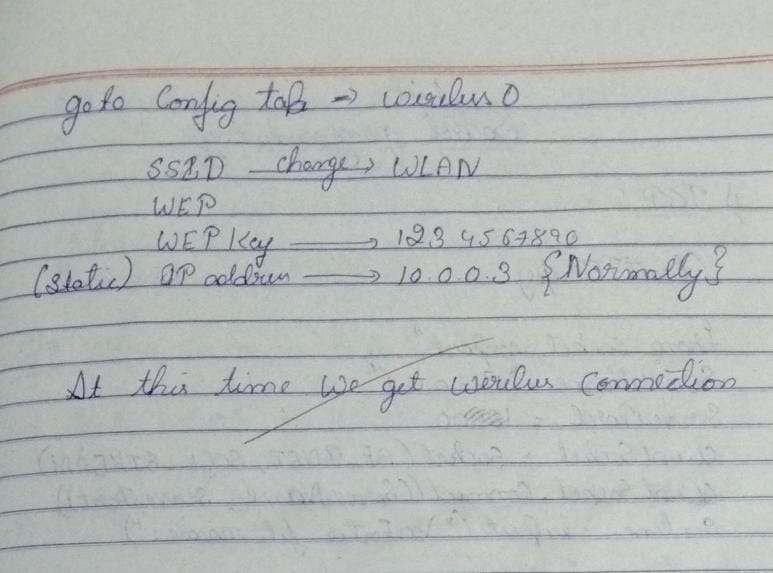 goto Config tab → wireless 0
SSID change → WLAN
WEP
WEP Key → 1234567890
(Static) IP address → 10.0.0.3 {Normally}
At this time we get wireless connection